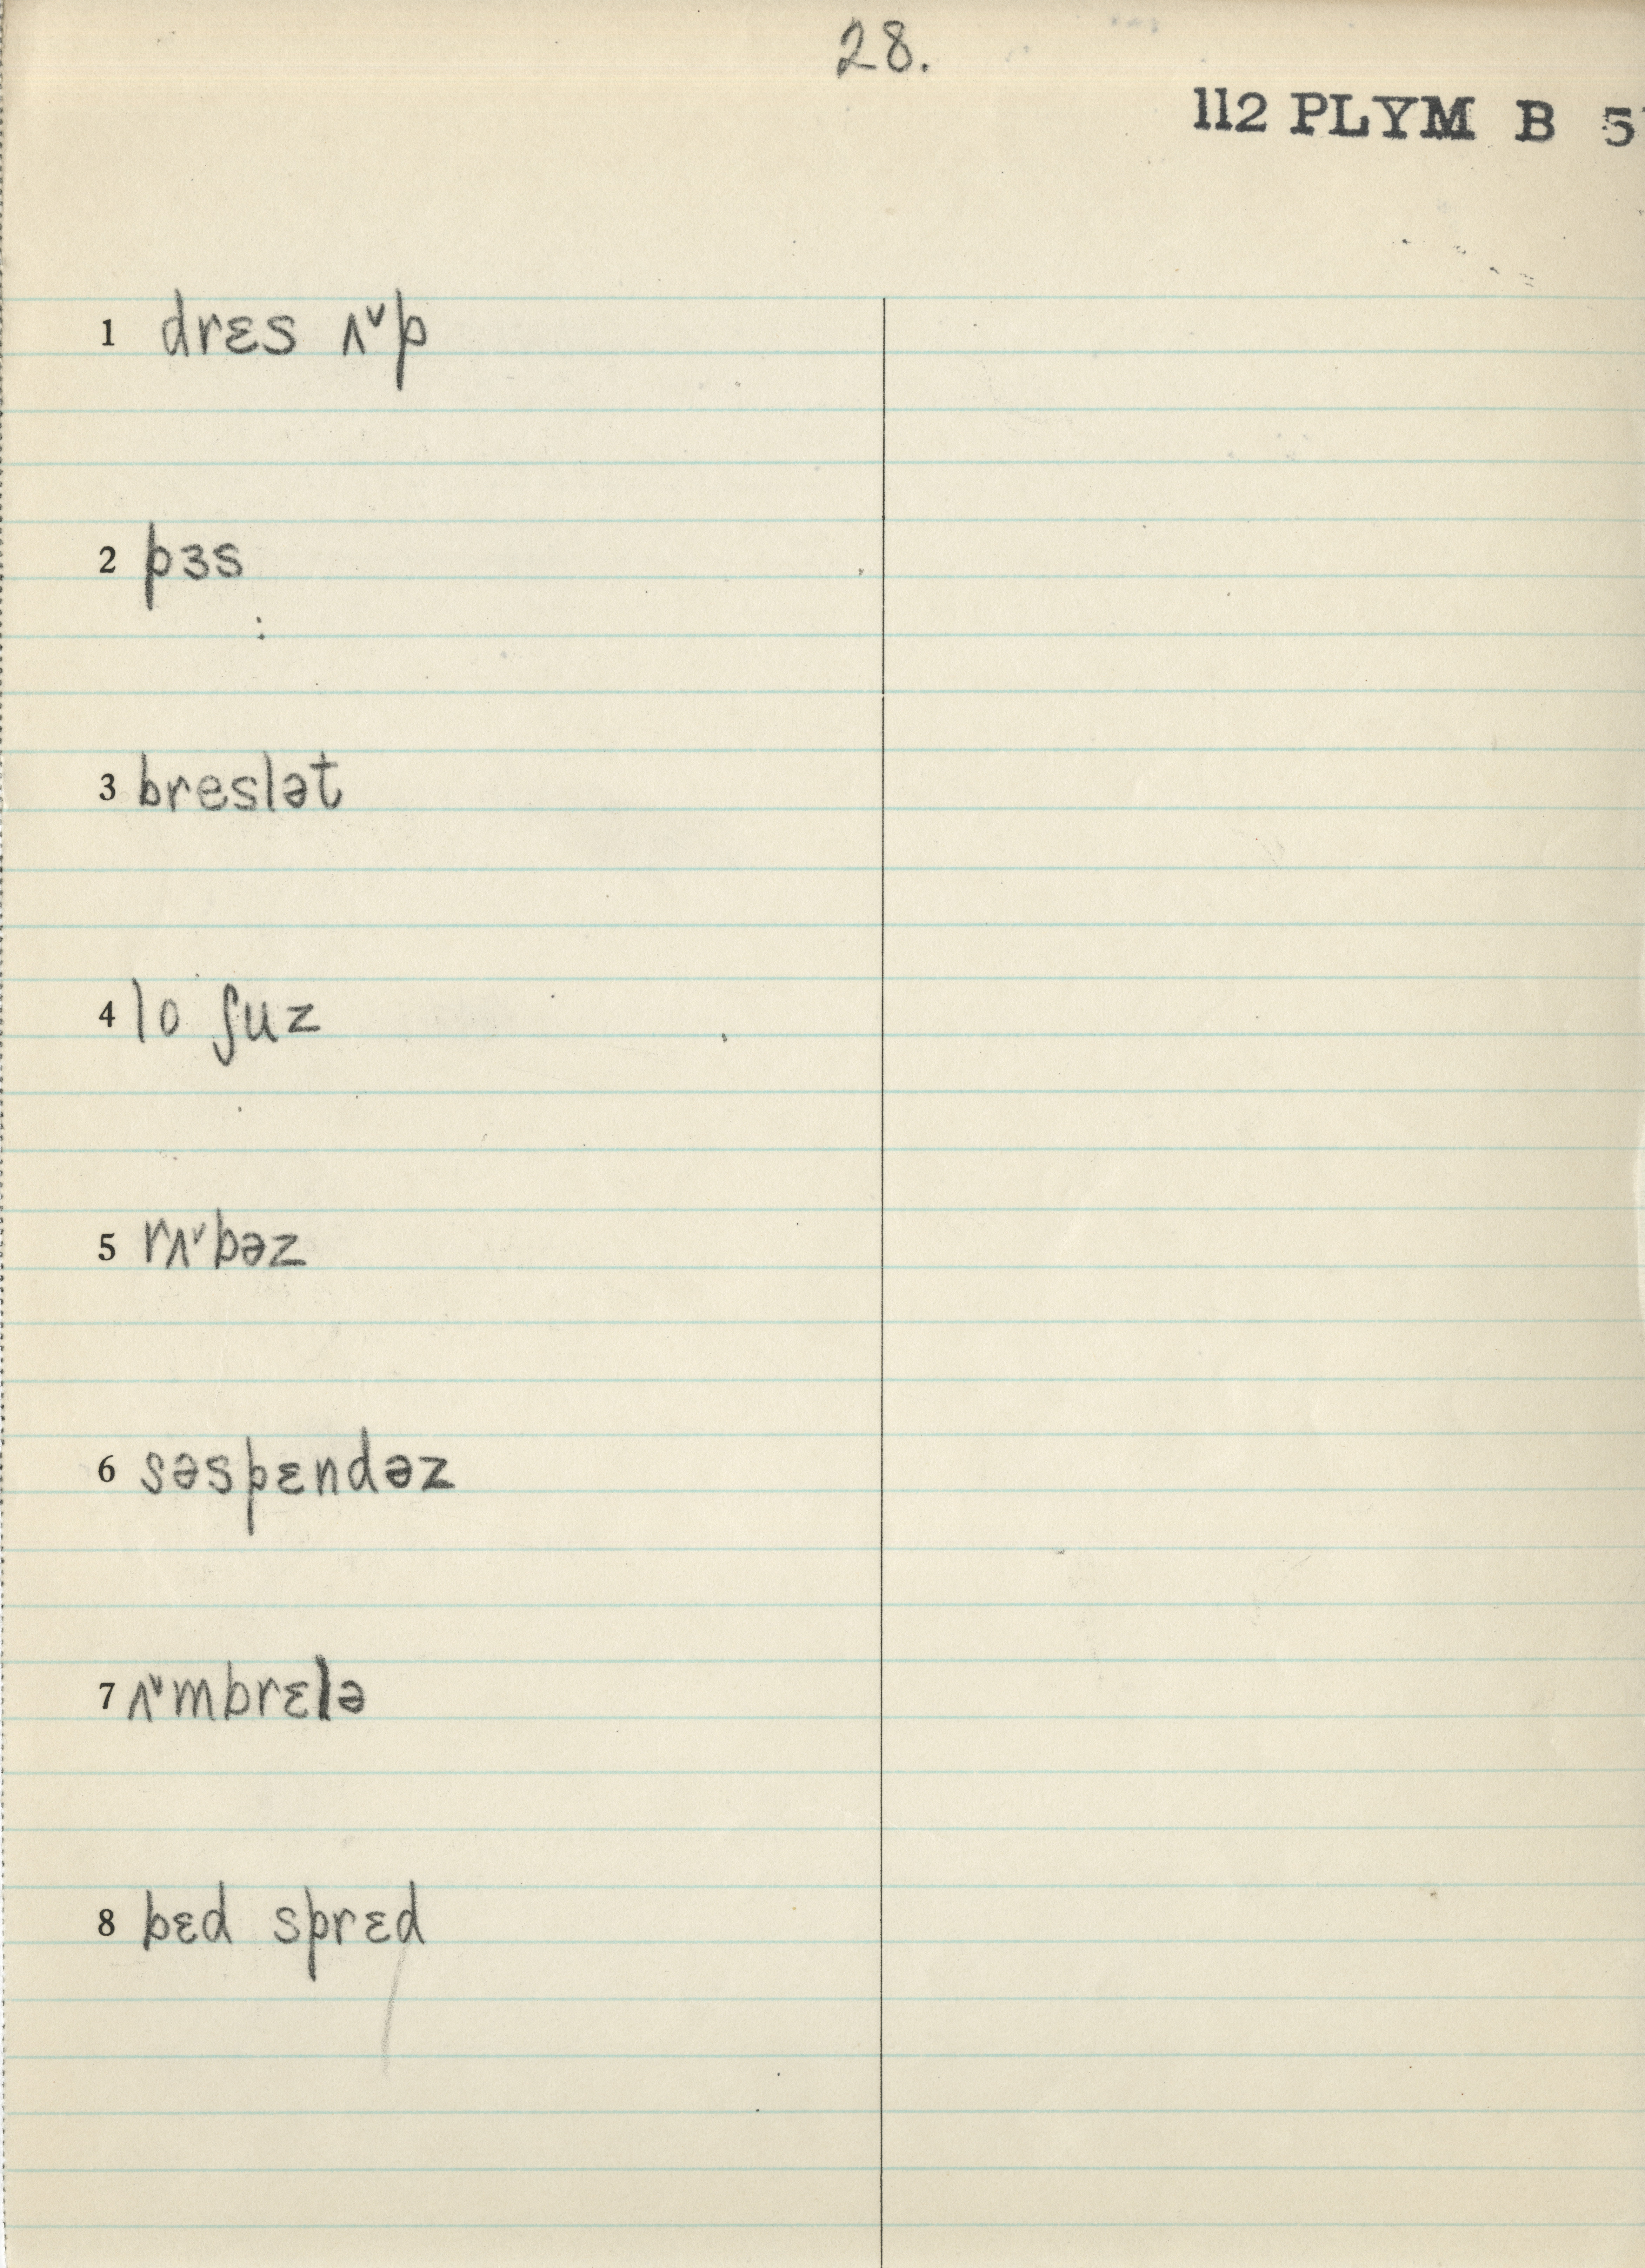 28.
112 PLYM B 5
1 drɛs ʌ˅p
2 pɜs
3 breslət
4 lo ʃuz
5 rʌ˅bəz
6 səspɛndəz
7 ʌ˅mbrɛlə
8 bɛd sprɛd